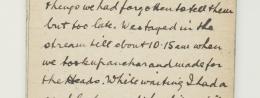 things we had forgotten to tell them
but too late. We stayed in the
stream till about 10.15 am when
we took up anchor and made for
the Heads. Whilst waiting I had a